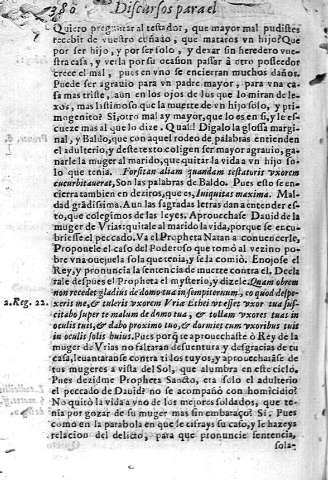 380 Discursos para el
Quiero preguntar al testador, que mayor mal pudistes
recebir de vuestro cuñado, que mataros vn hijo? Que
por ser hijo, y por ser solo, y dexar sin heredero vues-
tra casa, y verla por su ocasion passar à otro posseedor
crece el mal, pues en vno se encierran muchos daños.
Puede ser agrauio para vn padre mayor, para vna ca-
sa mas triste, aun en los ojos de los que lo miran de le-
xos, mas lastimoso que la muerte de vn hijo solo, y pri-
mogenito? Si, otro mal ay mayor, que lo es en si, y le es-
cueze mas al que lo dize. Qual? Digalo la glossa margi-
nal, y Baldo, que con aquel rodeo de palabras entienden
el adulterio, y deste texto coligen ser mayor agrauio, ga-
narle la muger al marido, que quitar la vida a vn hijo so-
lo que tenia. Forsitan aliam quandam testatoris vxorem
cucurbitauerat, Son las palabras de Baldo. Pues esto se en-
cierra tambien en deziros, que es, Iniquitas maxima. Mal-
dad gradissima. Aun las sagradas letras dan a entender es-
to, que colegimos de las leyes. Aprouechase Dauid de la
muger de Vrias: quitale al marido la vida, porque se encu-
briesse el pecado. Va el Propheta Natan a conuencerle,
Proponele el caso del Poderoso que tomò al vezino po-
bre vna ouejuela sola que tenia, y se la comiò. Enojose el
Rey, y pronuncia la sentencia de muerte contra el, Decla
rale despues el Propheta el mysterio, y dizele: Quam obrem
non recedet gladius de domo tua in sempiternum, eo quod despe-
2. Reg. 22. xeris me, & tuleris vxorem Vriæ Ethei vt esset vxor tua sus-
citabo super te malum de domo tua, & tollam vxores tuas in
oculis tuis, & dabo proximo tuo, & dormiet cum vxoribus tuis
in oculis solis huius. Pues porq̃ te aprouechaste ò Rey de la
muger de Vrias no faltaran desuentura y desgracias de tu
casa, leuantaranse contra ti los tuyos, y aprouecharãse de
tus mugeres a vista del Sol, que alumbra en este ciclo.
Pues dezidme Propheta Sancto, era solo el adulterio
el peccado de Dauid? no se acompañò con homicidio?
No quitò la vida a vno de los mejores soldados, que te-
nia por gozar de su muger mas sin embaraço? Si. Pues
como en la parabola en que le cifrays su caso, y le hazeys
relacion del delicto, para que pronuncie sentencia,
sola-